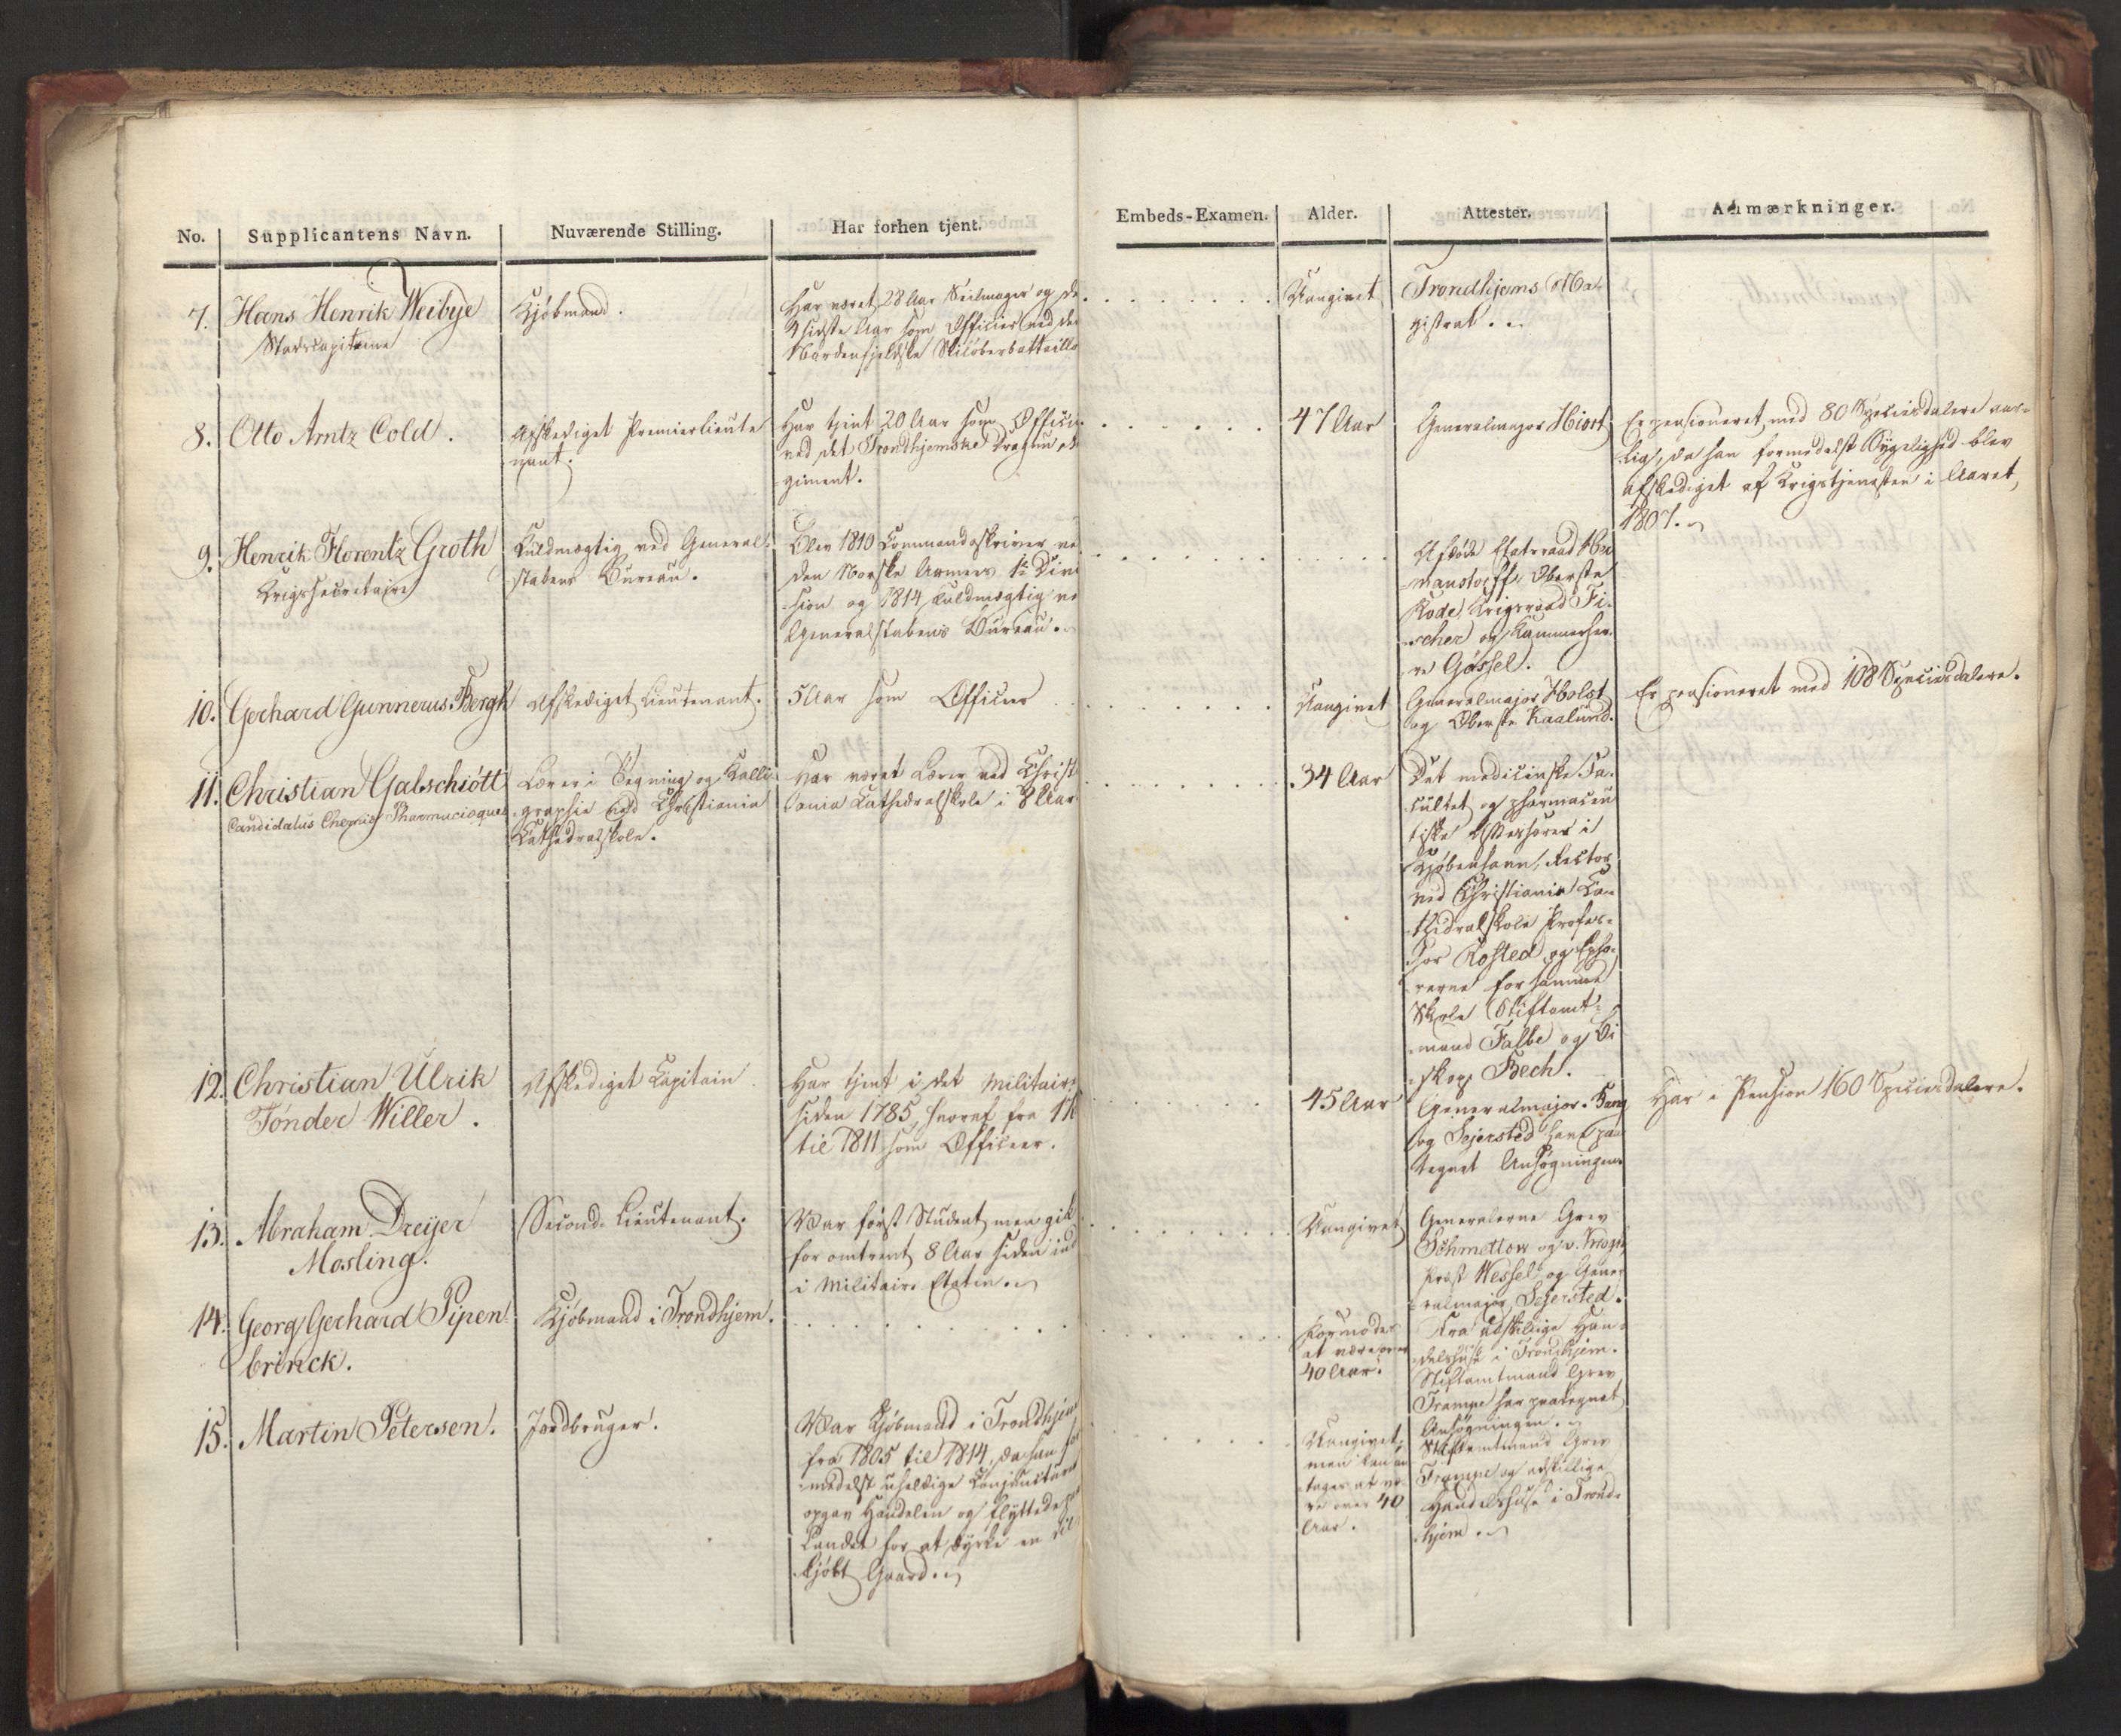 No. Supplicantens Navn. Nuværende Stilling. Har forhen tjent. Embeds-Examen. Alder. Attester. Anmærkninger.
7. Hans Henrik Weibye
Stadscapitaine
Kjöbmand.
Har været 28 Aar Seilmager og de
4 sidste Aar som Officier ved det
Nordenfjeldske Skilöberbattaillo
Uangivet
Trondhjems Ma-
gistrat.
8. Otto Arntz Cold.
Afskediget Premierlieute
nant.
Har tjent 20 Aar som Officie
ved det Trondhjemske Dragun re
giment.
47 Aar
Generalmajor Hiort
Er pensioneret med 80 Speciesdalere aar-
lig, da han formedelst Sygelighed blev
afskediget af Krigstjenesten i Aaret
1807.
9. Henrik Florentz Groth
Krigssecretaire
Fuldmægtig ved General-
stabens Bureau.
Blev 1810 Commandoskriver ve
den Norske Armees 1te Divi
sion og 1814 Fuldmægtig ve
Generalstabens Bureau.
Afdöde Etatsraad Her
manstorff, Oberste
Rode, Krigsraad Fi-
scher og Kammerher-
re Gössel.
10. Gerhard Gunnerus Bergh
Afskediget Lieutenant.
5 Aar som Officeer
Uangivet
Generalmajor Holst
og Oberste Kaalund.
Er pensioneret med 108 Speciesdalere.
11. Christian Galschiött
Candidatus Chemiæ Pharmaciæque
Lærer i Tegning og Kalli-
graphie ved Christiania
Kathedralskole.
Har været Lærer ved Christi
ania Kathedralskole i 8 Aar
34 Aar
Det medicinske Fa-
cultet og pharmaceu
tiske Assessorer i
Kjöbenhavn, Rector
ved Christiania Ca-
thedralskole Profes-
sor Rosted og Epho-
rerne for samme
Skole Stiftamt-
mand Falbe og Bi
skop Bech.
12. Christian Ulrik
Tönder Willer.
Afskediget Capitain
Har tjent i det Militaire
siden 1785, hvoraf fra 17
til 1811 som Officeer.
45 Aar
Generalmajor
og Sejersted have paa
tegnet Ansögningen
Har i Pension 160 Speciesdalere.
13. Abraham Dreijer
Mosling.
Second Lieutenant.
Var först Student, men gik
for omtrent 8 Aar siden ind
i Militair Etaten.
Uangivet
Generalerne Grev
Schmettow og v. Krogh
Præst Wessel og Gene-
ralmajor Sejersted.
14. Georg Gerhard Pipen-
brinck.
Kjöbmand i Trondhjem.
Formodes
at være over
40 Aar.
Fra adskillige Han-
delshuse i Trondhjem.
Stiftamtmand Grev
Trampe har paategnet
Ansögningen.
15. Martin Petersen.
Jordbruger.
Var Kjöbmand i Trondhjem
fra 1805 til 1814, da han for
medelst uheldige Conjuncturer
opgav Handelen og flyttede paa
Landet for at dyrke en til
kjöbt Gaard.
Uangivet,
men kan an
tages at væ
re over 40
Aar.
Stiftamtmand Grev
Trampe og adskillige
Handelshuse i Trond-
hjem.